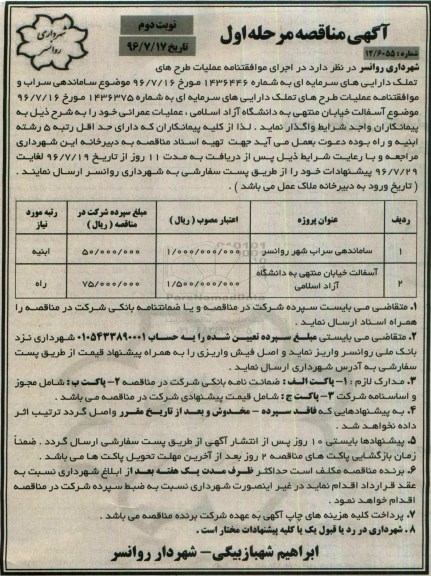 شهرداری
روانسر
آگهی مناقصه مرحله اول
نوبت دوم
شماره : ۱۲/۶۰۵۵
تاریخ ۹۶/۷/۱۷
شهرداری روانسر در نظر دارد در اجرای موافقتنامه عملیات طرح های
تملک دارایی های سرمایه ای به شماره ۱۴۳۶۴۴۶ مورخ ۹۶/۷/۱۶ موضوع ساماندهی سراب و
موافقتنامه عملیات طرح های تملک دارایی های سرمایه ای به شماره ۱۴۳۶۳۷۵ مورخ ۹۶/۷/۱۶
موضوع آسفالت خیابان منتهی به دانشگاه آزاد اسلامی ، عملیات عمرانی خود را به شرح ذیل به
پیمانکاران واجد شرایط واگذار نماید . لذا از کلیه پیمانکاران که دارای حد اقل رتبه ۵ رشته
ابنیه و راه بوده دعوت بعمل می آید جهت تهیه اسناد مناقصه به دبیرخانه این شهرداری
مراجعه و با رعایت شرایط ذیل پس از دریافت به مدت ۱۱ روز از تاریخ ۹۶/۷/۱۹ لغایت
۹۶/۷/۲۹ پیشنهادات خود را از طریق پست سفارشی به شهرداری روانسر ارسال نمایند .
( تاریخ ورود به دبیرخانه ملاک عمل می باشد )
ردیف عنوان پروژه اعتبار مصوب ( ریال ) مبلغ سپرده شرکت در مناقصه ( ریال ) رتبه مورد نیاز
۱ ساماندهی سراب شهر روانسر ۱/۰۰۰/۰۰۰/۰۰۰ ۵۰/۰۰۰/۰۰۰ ابنیه
۲ آسفالت خیابان منتهی به دانشگاه آزاد اسلامی ۱/۵۰۰/۰۰۰/۰۰۰ ۷۵/۰۰۰/۰۰۰ راه
۱. متقاضی می بایست سپرده شرکت در مناقصه و یا ضمانتنامه بانکی شرکت در مناقصه را
همراه اسناد ارسال نماید .
۲. متقاضی می بایستی مبلغ سپرده تعیین شده را به حساب ۰۱۰۵۴۳۳۸۹۰۰۰۱ شهرداری نزد
بانک ملی روانسر واریز نماید و اصل فیش واریزی را به همراه پیشنهاد قیمت از طریق پست
سفارشی به آدرس شهرداری ارسال نماید .
۳. مدارک لازم : ۱- پاکت الف : ضمانت نامه بانکی شرکت در مناقصه ۲- پاکت ب : شامل مجوز
و اساسنامه شرکت ۳- پاکت ج : شامل قیمت پیشنهادی شرکت در مناقصه می باشد .
۴. به پیشنهادهایی که فاقد سپرده - مخدوش و بعد از تاریخ مقرر واصل گردد ترتیب اثر
داده نخواهد شد .
۵. پیشنهادها بایستی ۱۰ روز پس از انتشار آگهی از طریق پست سفارشی ارسال گردد . ضمناً
زمان بازگشایی پاکت های مناقصه ۲ روز بعد از آخرین مهلت تحویل پاکت ها می باشد .
۶. برنده مناقصه مکلف است حداکثر ظرف مدت یک هفته بعد از ابلاغ شهرداری نسبت به
عقد قرارداد اقدام نماید در غیر اینصورت شهرداری نسبت به ضبط سپرده شرکت در مناقصه
اقدام خواهد نمود .
۷. پرداخت کلیه هزینه های چاپ آگهی به عهده شرکت برنده مناقصه می باشد .
۸. شهرداری در رد یا قبول یک یا کلیه پیشنهادات مختار است .
ابراهیم شهبازبیگی - شهردار روانسر